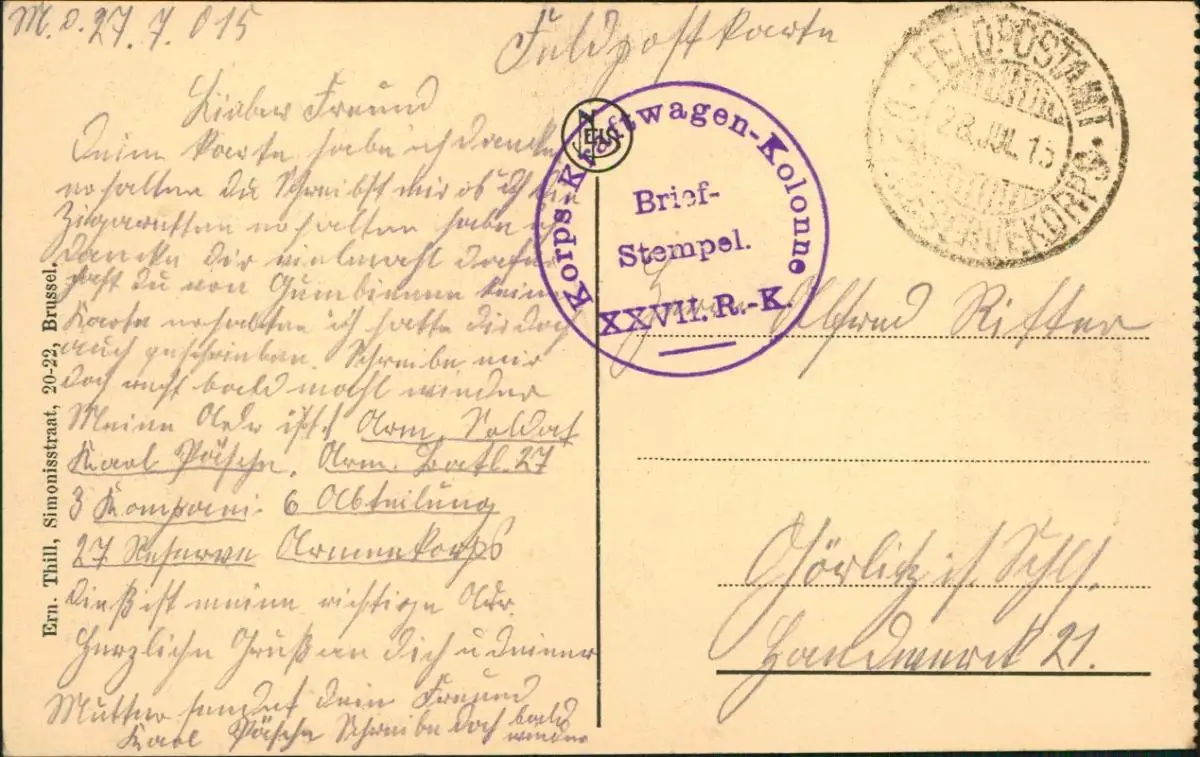 M. d. 27. 7. 015
Feldpostkarte
Lieber Freund
Deine Karte habe ich danke
erhalten du Schreibst mir ob ich die
Zigaretten erhalten habe ich
dancke dir vielmahl dafür
hast du von Gumbinnen keine
Karte erhalten ich hatte dir doch
auch geschrieben. Schreibe mir
doch recht bald mahl wieder
Meine Adr ist! Arm. Soldat
Karl Päschn. Arm. Batl. 27
3 Kompani. 6 Abteilung
27 Reserve Armeekorps
dieß ist meine richtige Adr.
Herzliche Grüße an dich u deiner
Mutter sendet dein Freund
Karl Päschn Schreibe doch bald
wieder
Ern. Thill, Simonisstraat, 20-22, Brussel.
NELS
Korps-Kraftwagen-Kolonne
Brief-
Stempel.
XXVII. R.-K.
FELDPOSTAMT
28. JUL. 15
RESERVEKORPS
Herrn Alfred Ritter
Görlitz i/ Schl.
Handwerk 21.